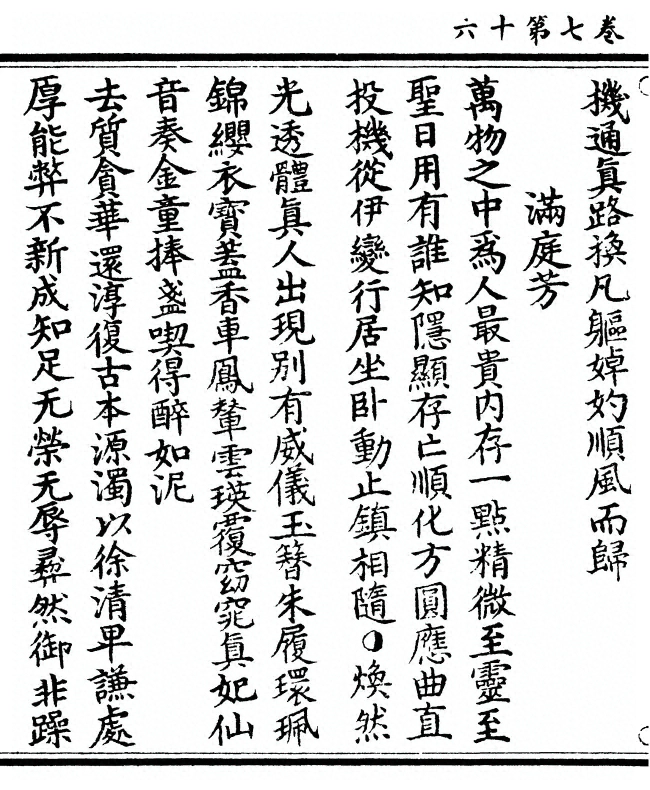 卷七第十六
機通眞路換凡軀婥妁順風而歸
滿庭芳
萬物之中爲人最貴内存一點精微至靈至
聖日用有誰知隱顯存亡順化方圓應曲直
投機從伊變行居坐卧動止鎮相隨○煥然
光透體眞人出現别有威儀玉簪朱履環珮
錦纓衣寶蓋香車鳳輦雲瑛覆窈窕眞妃仙
音奏金童捧盞喫得醉如泥
去質貪華還淳復古本源濁以徐清卑謙處
厚能弊不新成知足无榮无辱彛然御非躁